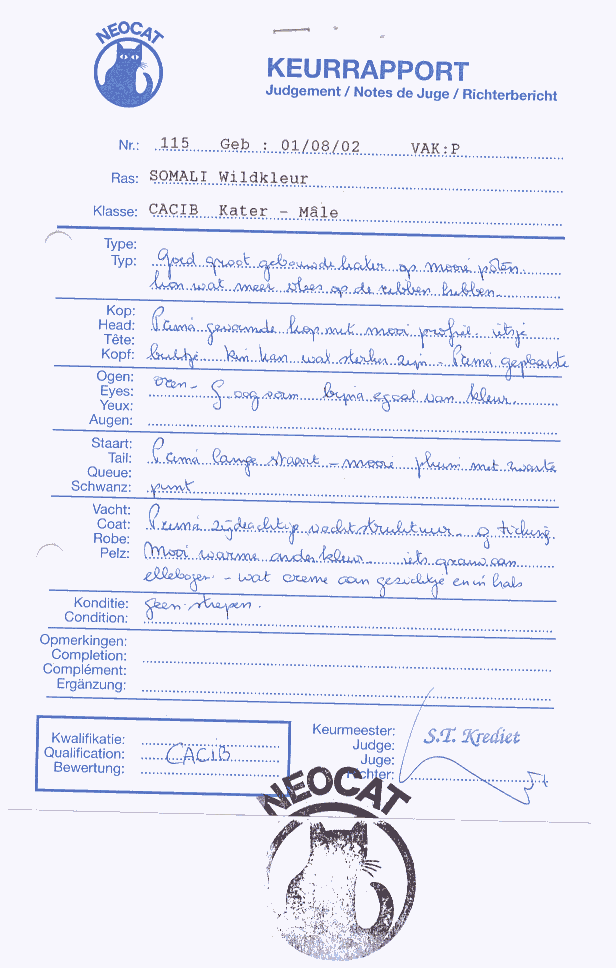 NEOCAT
KEURRAPPORT
Judgement / Notes de Juge / Richterbericht
Nr.: 115 Geb : 01/08/02 VAK:P
Ras: SOMALI Wildkleur
Klasse: CACIB Kater - Mâle
Type:
Typ: Goed groot gebouwde kater op mooie poten.
kon wat meer vlees op de ribben hebben.
Kop:
Head: Prima gevormde kop met mooi profiel. ietsje
Tête:
Kopf: bultje. Kin kan wat sterker zijn - Prima geplaatste
Ogen: oren -
Eyes: G oogvorm bijna egaal van kleur.
Yeux:
Augen:
Staart:
Tail: Prima lange staart - mooie pluim met zwarte
Queue:
Schwanz: punt
Vacht:
Coat: Prima zijdeachtige vachtstruktuur. g ticking.
Robe:
Pelz: Mooi warme onderkleur. iets grauw aan
ellebogen - wat creme aan gezichtje en in hals
Konditie: geen strepen.
Condition:
Opmerkingen:
Completion:
Complément:
Ergänzung:
Kwalifikatie:
Qualification: CACIB
Bewertung:
Keurmeester: S.T. Krediet
Judge:
Juge:
Richter:
NEOCAT